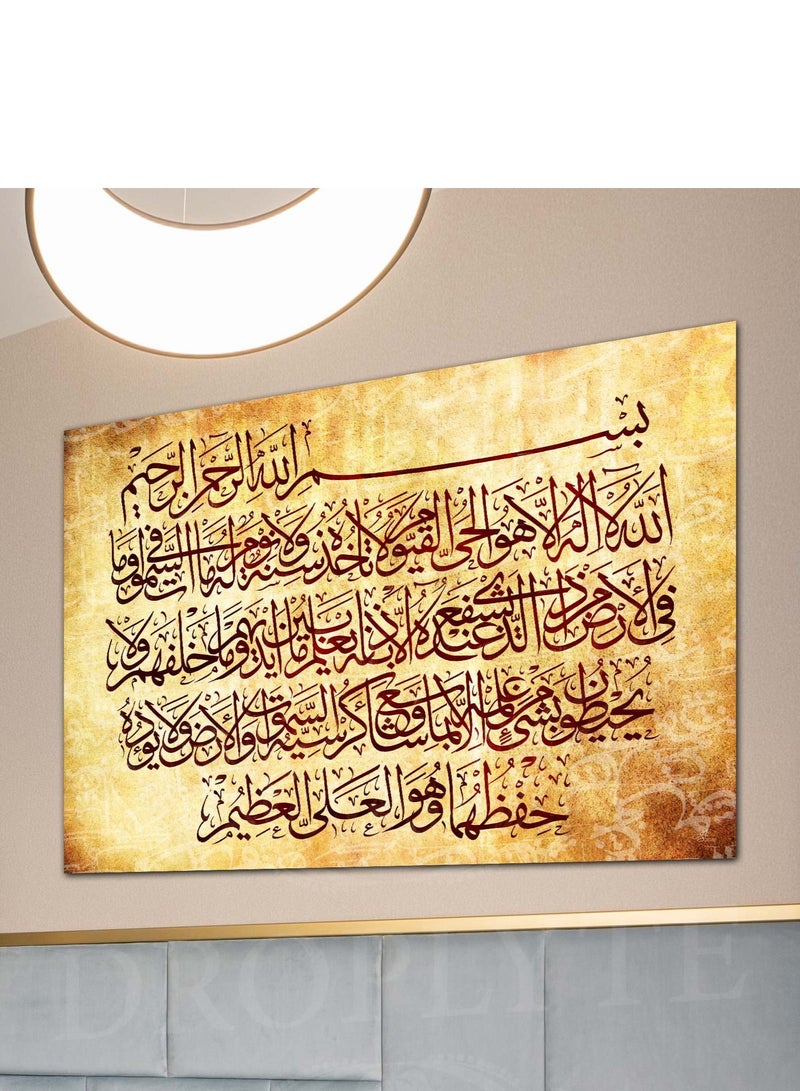 بسم الله الرحمن الرحيم
الله لا إله إلا هو الحي القيوم لا تأخذه سنة ولا نوم له ما في السموات وما
في الأرض من ذا الذي يشفع عنده إلا بإذنه يعلم ما بين أيديهم وما خلفهم ولا
يحيطون بشيء من علمه إلا بما شاء وسع كرسيه السموات والأرض ولا يؤده
حفظهما وهو العلي العظيم
DROPLYTE